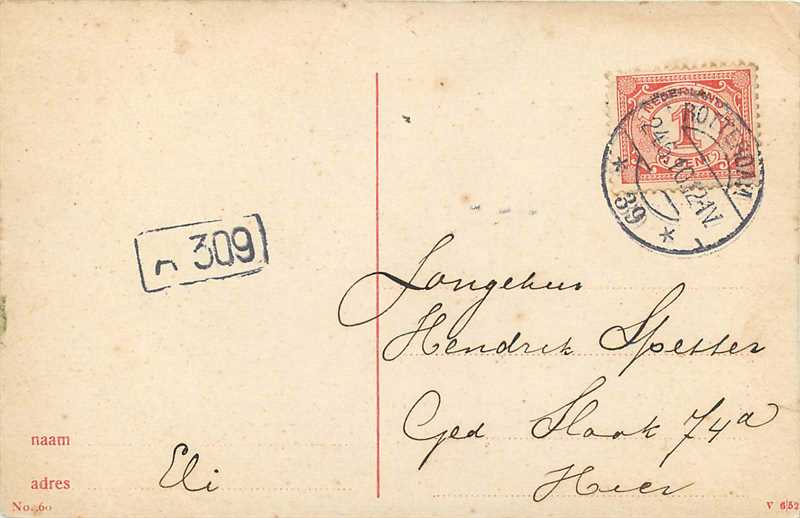 NEDERLAND
1
CENT
ROTTERDAM
39
309
Jongeheer
Hendrik Spetter
Ged Slaak 74a
Hier
naam
adres Eli
No. 60
V 652